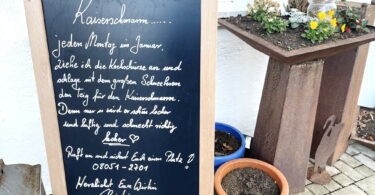 Kaiserschmarrn......
jeden Montag im Januar.
Ziehe ich die Kochschürze an und
schlage mit dem großen Schneebesen
den Teig für den Kaiserschmarrn.
Denn nur so wird er schön locker
und luftig und schmeckt richtig
lecker ♡
Ruft an und sichert Euch einen Platz!
08051-2701
Herzlichst Eure Wirtin